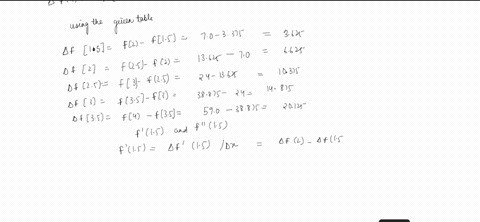 using the given table
Δf [1.5] = f(2) - f[1.5] = 7.0 - 3.375 = 3.625
Δf [2] = f(2.5) - f(2) = 13.625 - 7.0 = 6.625
Δf (2.5) = f[3] - f(2.5) = 24 - 13.625 = 10.375
Δf [3] = f[3.5] - f[3] = 38.875 - 24 = 14.875
Δf [3.5] = f(4) - f[3.5] = 59.0 - 38.875 = 20.125
f'(1.5) and f''(1.5)
f'(1.5) = Δf'(1.5) /Δx = Δf(2) - Δf(1.5